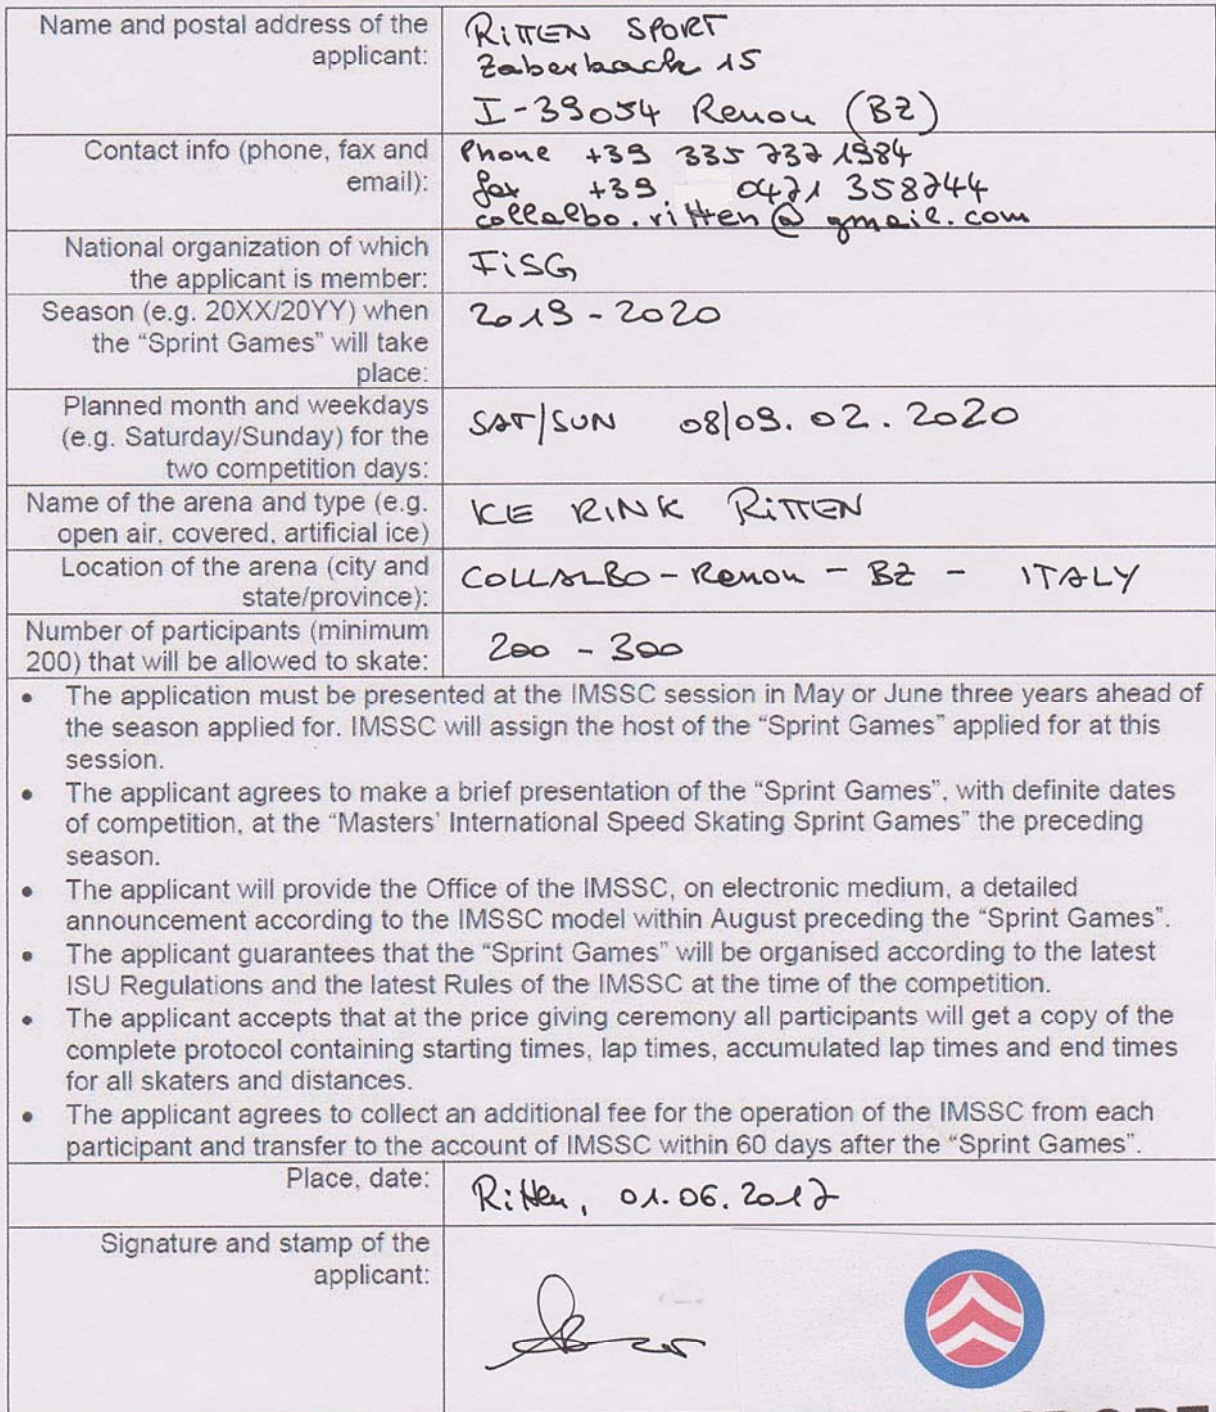 Name and postal address of the applicant:
RITTEN SPORT
Zaberbach 15
I-39054 Renon (BZ)
Contact info (phone, fax and email):
Phone +39 335 7371984
fax +39 0471 358744
collalbo.ritten@gmail.com
National organization of which the applicant is member:
FISG
Season (e.g. 20XX/20YY) when the “Sprint Games” will take place:
2019-2020
Planned month and weekdays (e.g. Saturday/Sunday) for the two competition days:
SAT/SUN 08/09.02.2020
Name of the arena and type (e.g. open air, covered, artificial ice)
ICE RINK RITTEN
Location of the arena (city and state/province):
COLLALBO - Renon - BZ - ITALY
Number of participants (minimum 200) that will be allowed to skate:
200 - 300
• The application must be presented at the IMSSC session in May or June three years ahead of
the season applied for. IMSSC will assign the host of the “Sprint Games” applied for at this
session.
• The applicant agrees to make a brief presentation of the “Sprint Games”, with definite dates
of competition, at the “Masters’ International Speed Skating Sprint Games” the preceding
season.
• The applicant will provide the Office of the IMSSC, on electronic medium, a detailed
announcement according to the IMSSC model within August preceding the “Sprint Games”.
• The applicant guarantees that the “Sprint Games” will be organised according to the latest
ISU Regulations and the latest Rules of the IMSSC at the time of the competition.
• The applicant accepts that at the price giving ceremony all participants will get a copy of the
complete protocol containing starting times, lap times, accumulated lap times and end times
for all skaters and distances.
• The applicant agrees to collect an additional fee for the operation of the IMSSC from each
participant and transfer to the account of IMSSC within 60 days after the “Sprint Games”.
Place, date:
Ritten, 01.06.2017
Signature and stamp of the applicant: